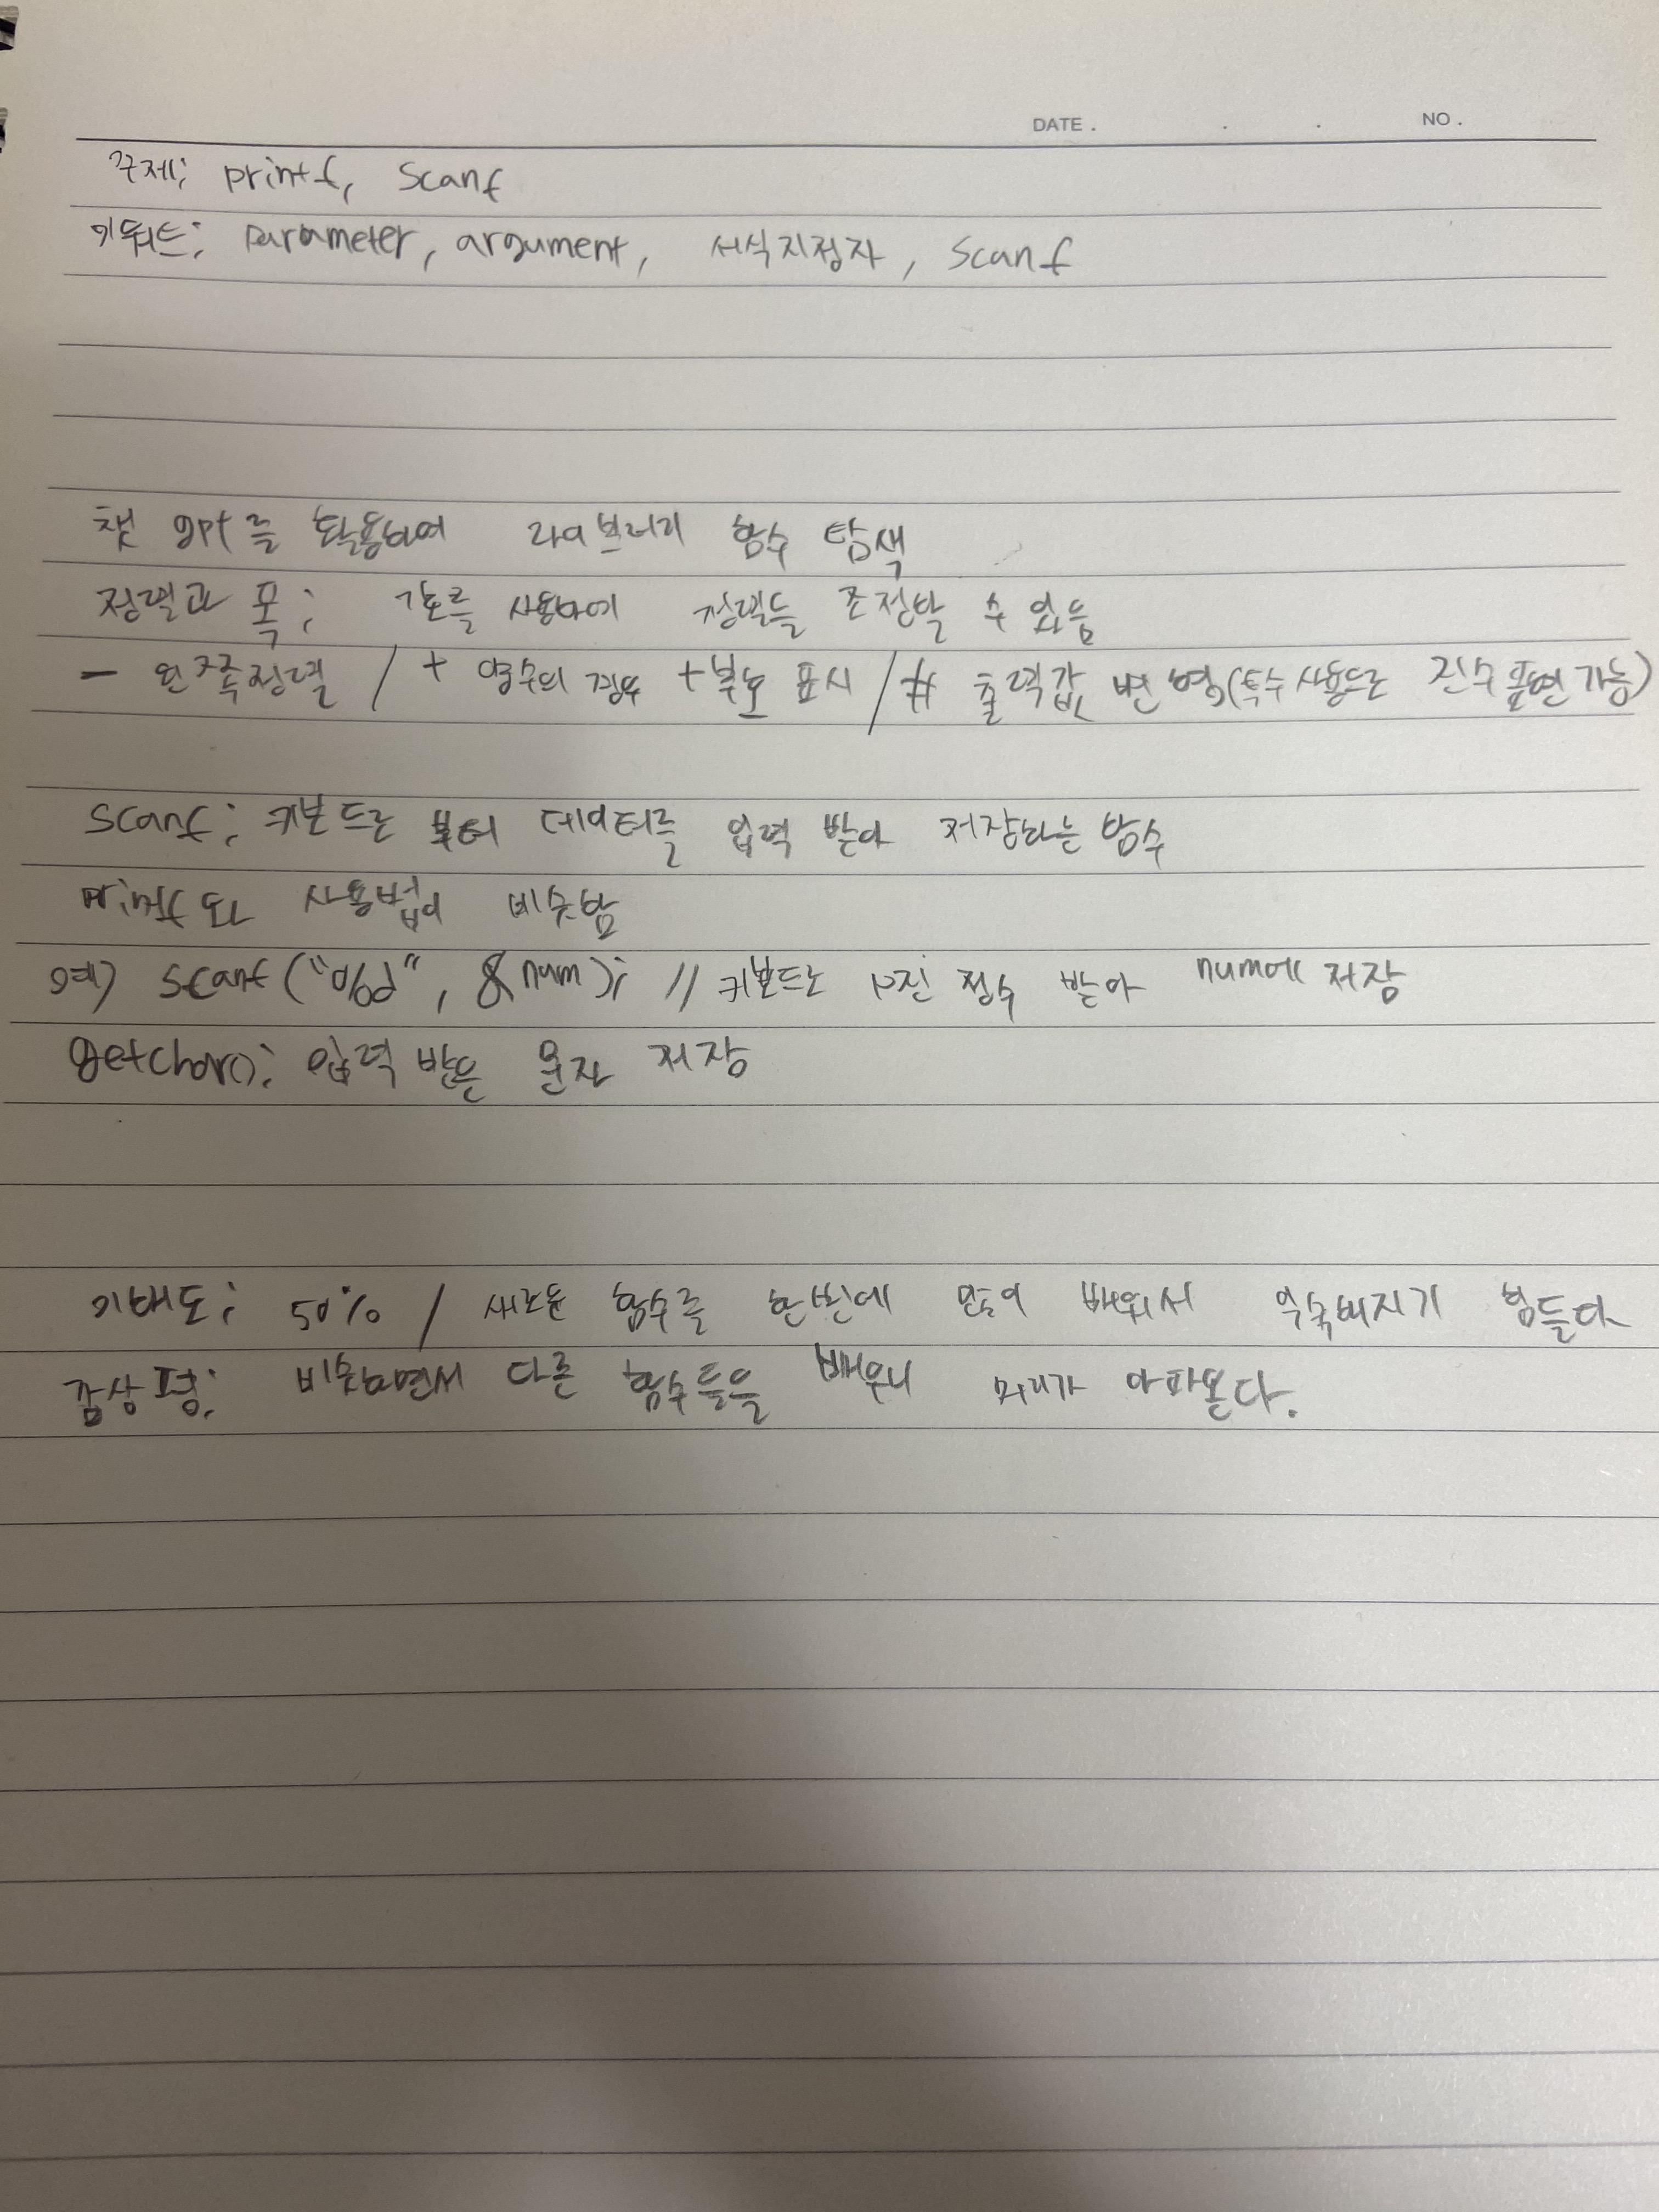 DATE . . . NO .
주제: printf, scanf
키워드: parameter, argument, 서식지정자, scanf
챗 gpt를 활용하여 라이브러리 함수 탐색
정렬과 폭: 기호를 사용하여 정렬을 조정할 수 있음
- 왼쪽정렬 / + 양수의 경우 +부호 표시 / # 출력값 변형(특수 사용으로 진수 표현 가능)
scanf: 키보드로 부터 데이터를 입력 받아 저장하는 함수
printf와 사용법이 비슷함
예) scanf("%d", &num); // 키보드로 10진 정수 받아 num에 저장
getchar(): 입력 받은 문자 저장
이해도: 50% / 새로운 함수를 한번에 많이 배워서 익숙해지기 힘들다
감상평: 비슷하면서 다른 함수들을 배우니 머리가 아파온다.